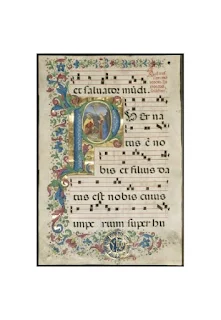 et salvator mũdi.
P Uer na
tus ẽ no
bis et filius da
tus est nobis cuius
impe rium super hu